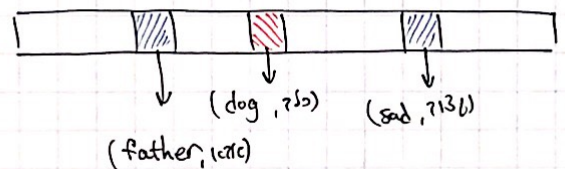 (dog, כלב)
(sad, עצוב)
(father, אבא)